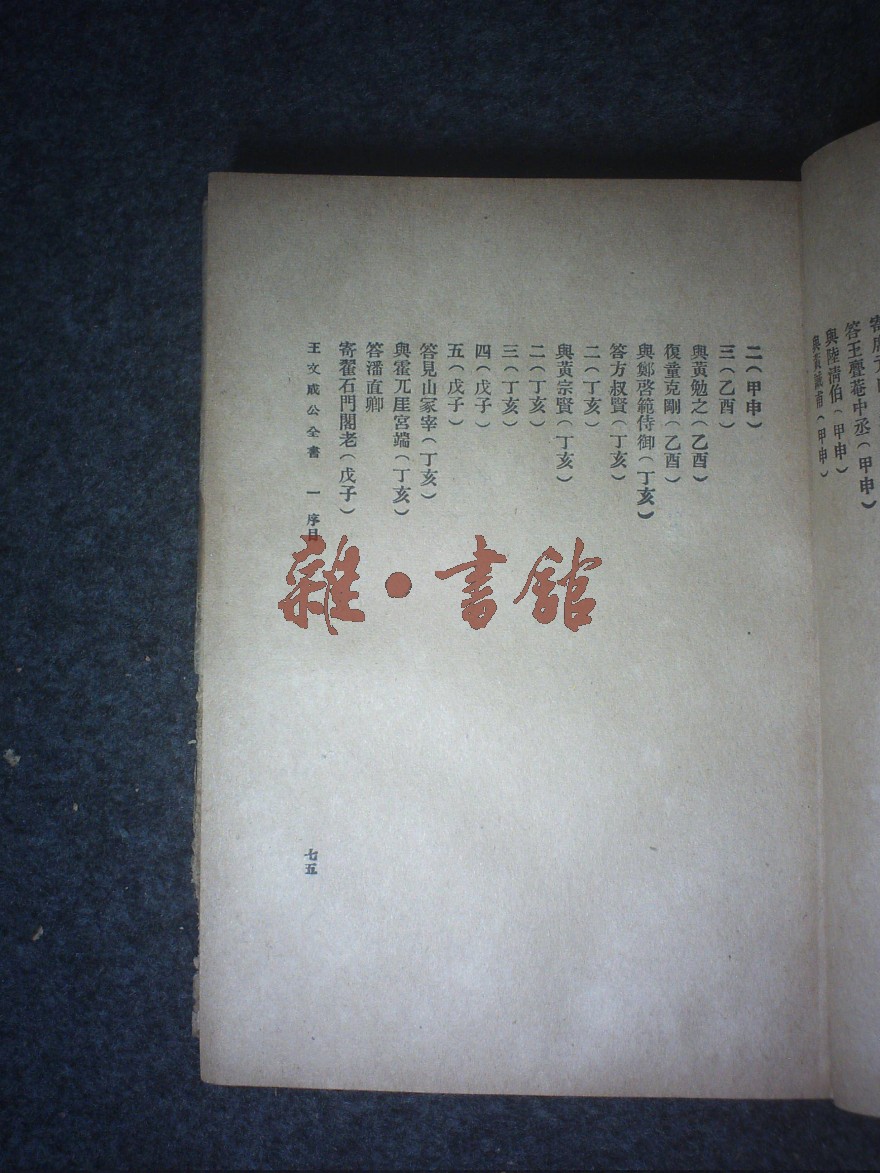 答王亹菴中丞(甲申)
與陸淸伯(甲申)
與黃誠甫(甲申)
二(甲申)
三(乙酉)
與黃勉之(乙酉)
復童克剛(乙酉)
與鄭啓範侍御(丁亥)
答方叔賢(丁亥)
二(丁亥)
與黃宗賢(丁亥)
二(丁亥)
三(丁亥)
四(戊子)
五(戊子)
答見山冢宰(丁亥)
與霍兀厓宮端(丁亥)
答潘直卿
寄翟石門閣老(戊子)
王文成公全書 一 序目
七五
雜·書館